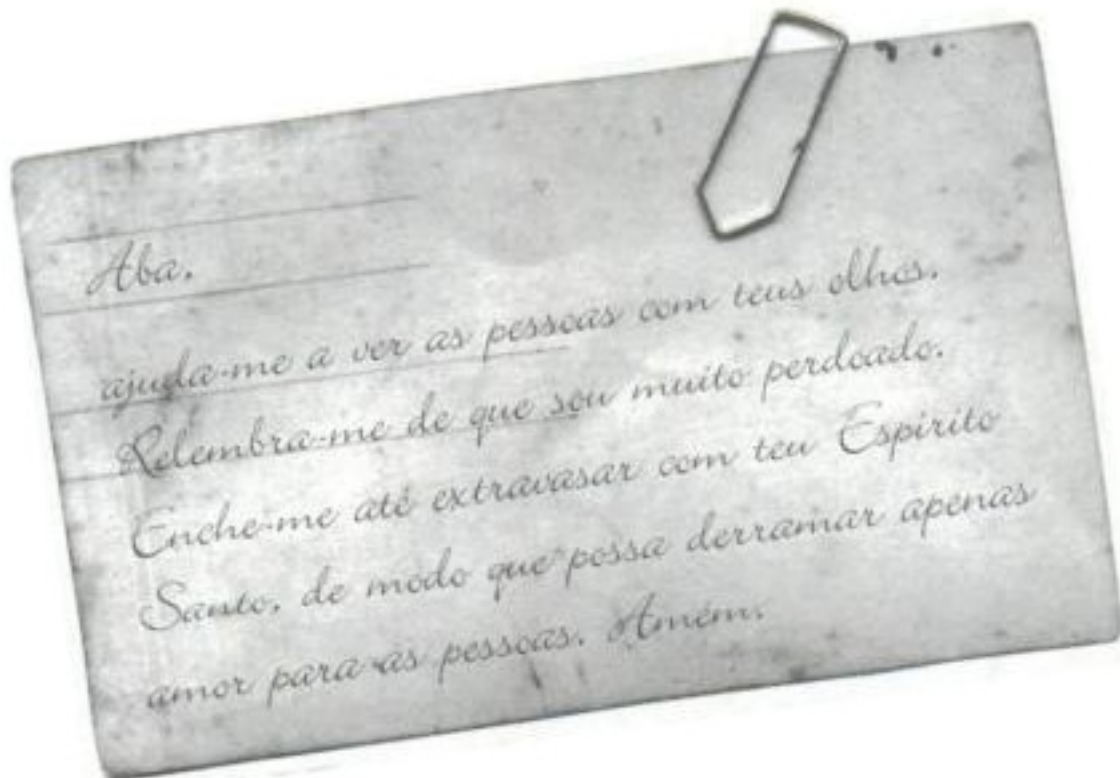 Aba,
ajuda-me a ver as pessoas com teus olhos.
Relembra-me de que sou muito perdoado.
Enche-me até extravasar com teu Espírito
Santo, de modo que possa derramar apenas
amor para as pessoas. Amém.